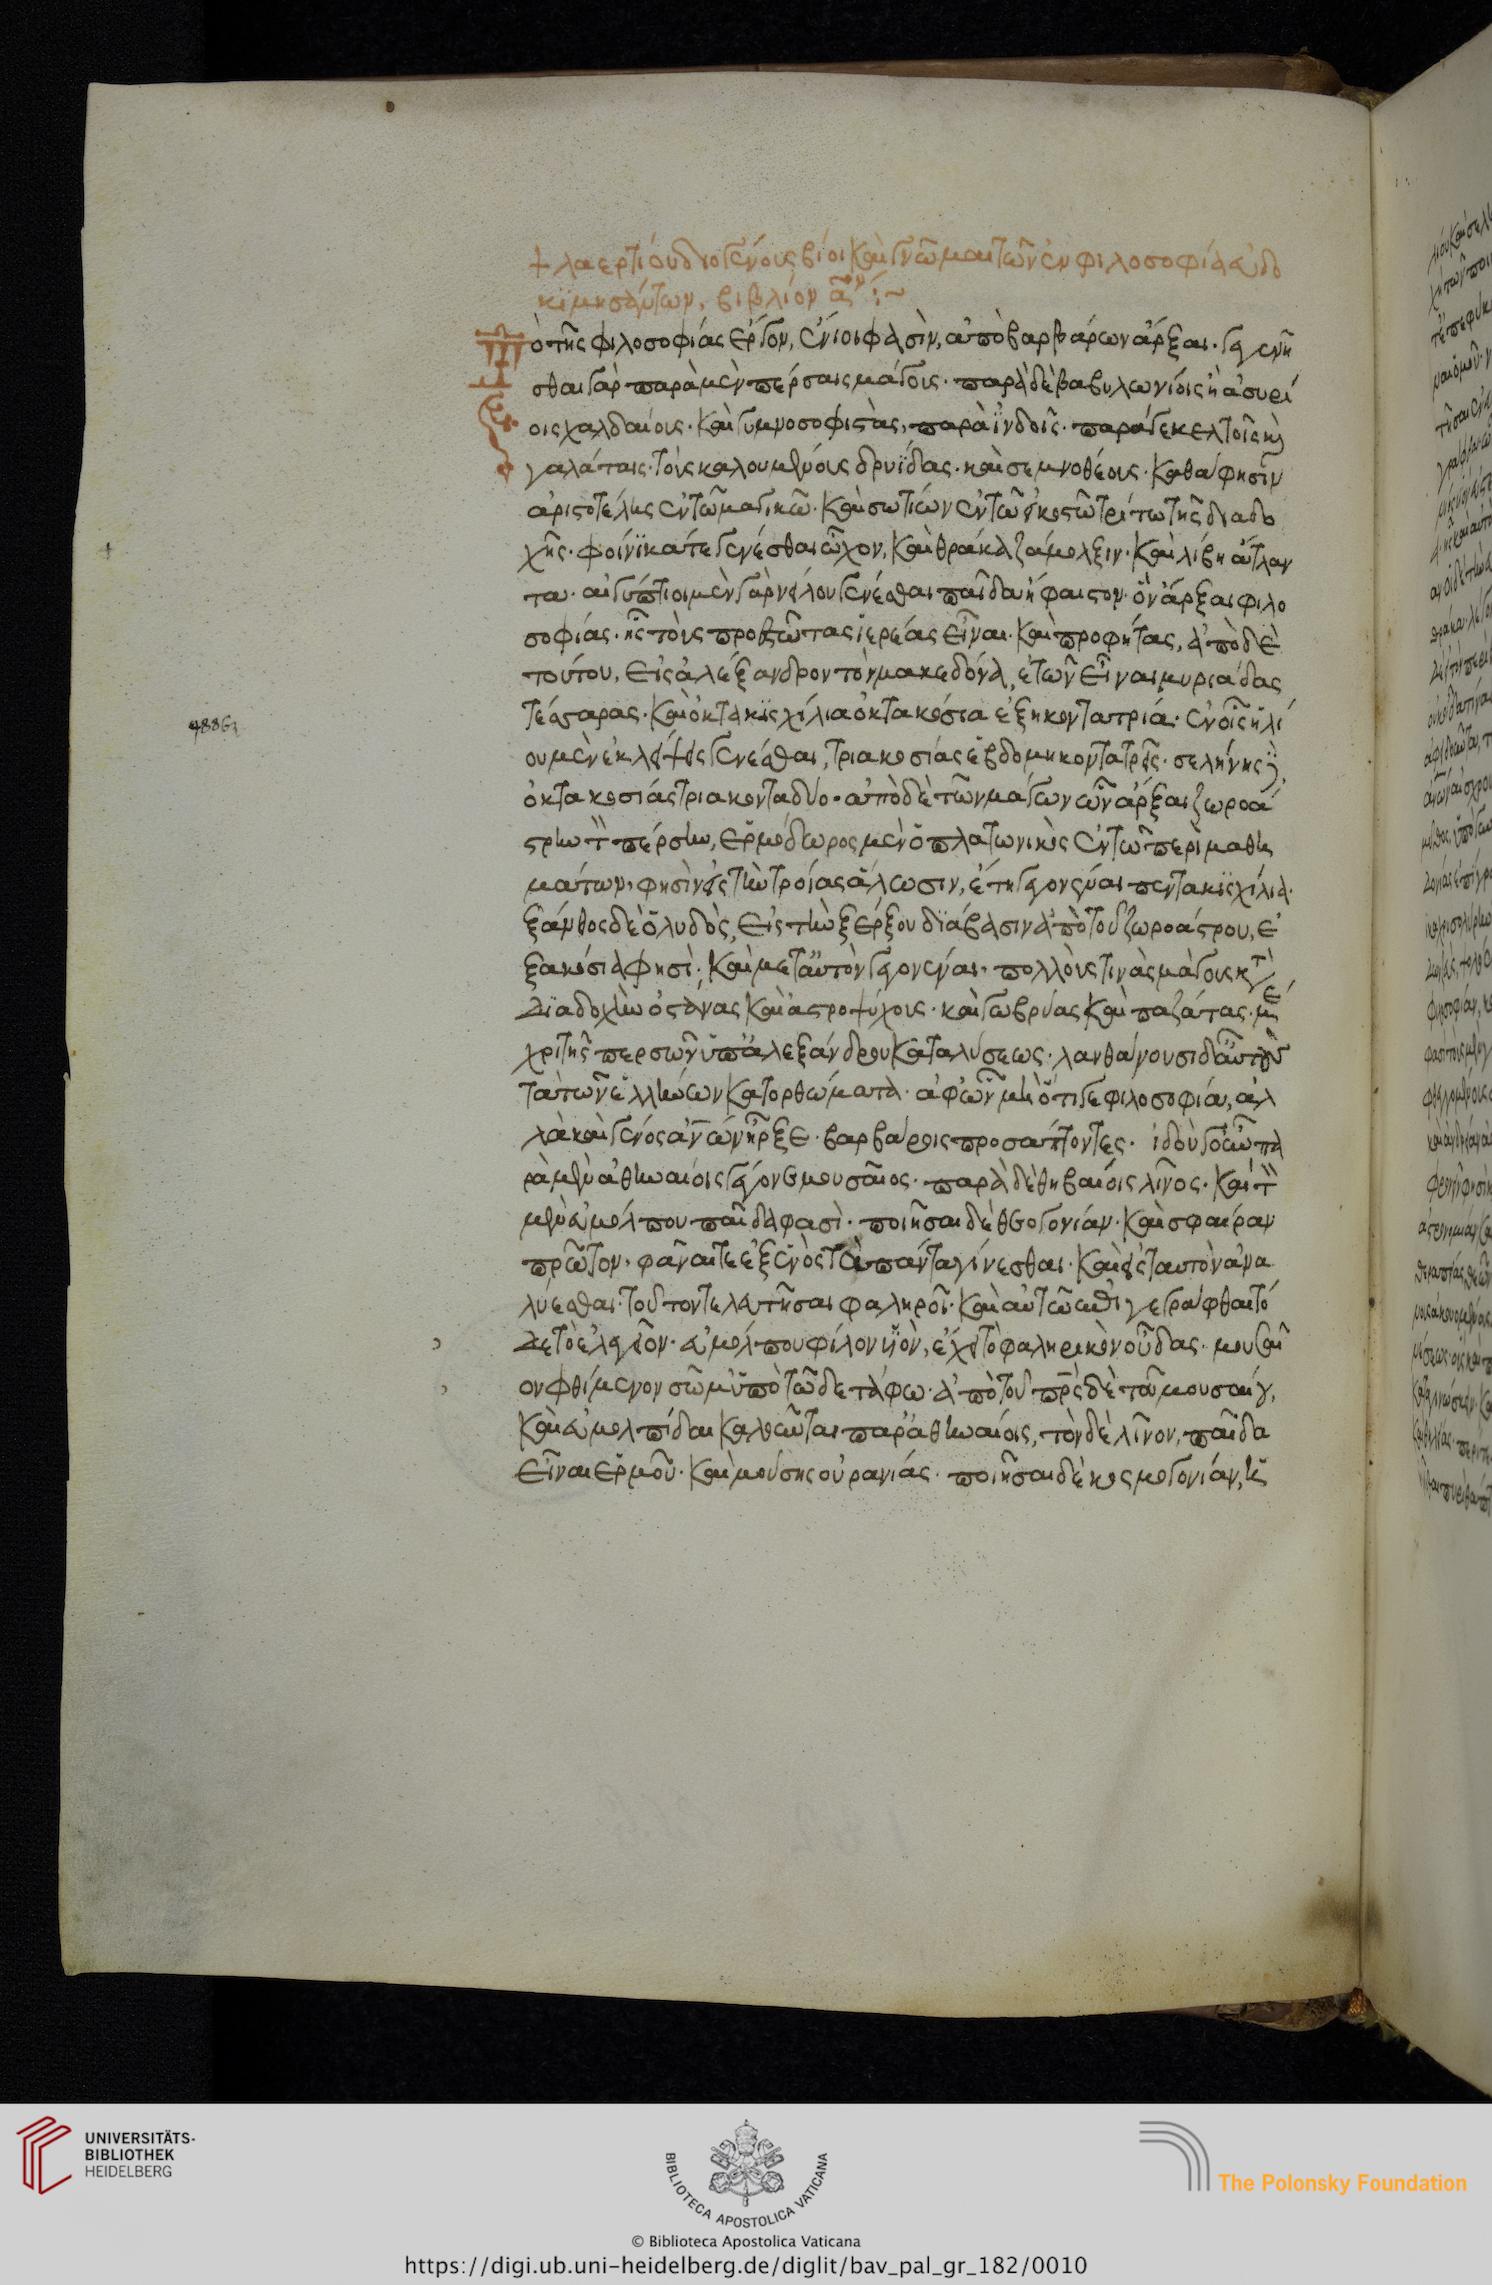 + λαερτίου διογένους βίοι καὶ γνῶμαι τῶν ἐν φιλοσοφία εὐδο
κϊμησάντων, βιβλίον α^ον :~
Τὸ τῆς φιλοσοφίας ἔργον, ἔνιοι φασὶν, ἀπὸ βαρβάρων ἄρξαι. γεγενῆ
σθαι γὰρ παρὰ μὲν πέρσαις μάγους. παρὰ δὲ βαβυλωνίοις ἢ ἀσυρί
οις χαλδαίους. καὶ γυμνοσοφιστὰς, παρὰ ἰνδοῖς. παρά τε κελτοῖς καὶ
γαλάταις. τοὺς καλουμένους δρυΐδας. καὶ σεμνοθέους. καθά φησὶν
ἀριστοτέλης ἐν τῶ μαγικῶ. καὶ σωτίων ἐν τῶ εἰκοστῶ τρίτω τῆς διαδο
χῆς. φοίνϊκά τε γενέσθαι ὦχον, καὶ θράκα ζάμολξιν. καὶ λίβη ἄτλαν
τα. αἰγύπτιοι μὲν γὰρ νείλου γενέσθαι παῖδα ἥφαιστον. ὃν ἄρξαι φιλο
σοφίας. ἧς τοὺς προεστῶτας ἱερέας εἶναι. καὶ προφήτας, ἀπὸ δὲ
τούτου, εἰς ἀλέξανδρον τὸν μακεδόνα, ἐτῶν εἶναι μυριάδας
τέσσαρας. καὶ ὀκτακϊςχίλια ὀκτακόσια ἑξηκοντατρία. ἐν οἷς ἡλί
ου μὲν ἐκλείψεις γενέσθαι, τριακοσίας ἑβδομηκοντατρεῖς. σελήνης δὲ
ὀκτακοσίας τριακονταδύο. ἀπὸ δὲ τῶν μάγων ὧν ἄρξαι ζωροά
στρην τὸν πέρσην, ἑρμόδωρος μὲν ὁ πλατωνικὸς ἐν τῶ περὶ μαθη
μάτων, φησὶν εἰς τὴν τροίας ἅλωσιν, ἔτη γεγονέναι πεντακϊςχίλια.
ξάνθος δὲ ὁ λυδὸς, εἰς τὴν ξέρξου διάβασιν ἀπὸ τοῦ ζωροάστρου, ἑ
ξακόσιά φησὶ. καὶ μετ' αὐτὸν γεγονέναι. πολλούς τινὰς μάγους κατὰ
διαδοχὴν ὀστάνας καὶ ἀστροψύχους. καὶ γωβρύας καὶ παζάτας. μέ
χρι τῆς περσῶν ὑπ' ἀλεξάνδρου καταλύσεως. λανθάνουσι δ' αὐτοὺς
τὰ τῶν ἑλλήνων κατορθώματα. ἀφ' ὧν μὴ ὅτι γε φιλοσοφία, ἀλ
λὰ καὶ γένος ἀνων ἦρξε. βαρβάροις προσάπτοντες. ἰδοὺ γοῦν πα
ρὰ μὲν ἀθηναίοις γέγονε μουσαῖος. παρὰ δὲ θηβαίοις λῖνος. καὶ τὸν
μὲν εὐμόλπου παῖδα φασὶ. ποιῆσαι δὲ θεογονίαν. καὶ σφαῖραν
πρῶτον. φᾶναί τε ἐξ ἑνὸς τὰ πάντα γίνεσθαι. καὶ εἰς ταυτὸν ἀνα
λυεσθαι. τοῦτον τελευτῆσαι φαληροῖ. καὶ αὐτῶ ἐπιγεγράφθαι τό
δε τὸ ἐλεγεῖον. εὐμόλπου φίλον υἱὸν, ἔχει τὸ φαληρικὸν οὖδας. μουσαῖ
ον φθίμενον σῶμ' ὑπὸ τῶδε τάφω. ἀπὸ τοῦ πρς δὲ τοῦ μουσαίου,
καὶ εὐμολπίδαι καλοῦνται παρ' ἀθηναίοις, τὸν δὲ λῖνον, παῖδα
εἶναι ἑρμοῦ. καὶ μούσης οὐρανίας. ποιῆσαι δὲ κοσμογονίαν, ἡλ
48863
UNIVERSITÄTS-
BIBLIOTHEK
HEIDELBERG
BIBLIOTECA APOSTOLICA VATICANA
© Biblioteca Apostolica Vaticana
The Polonsky Foundation
https://digi.ub.uni-heidelberg.de/diglit/bav_pal_gr_182/0010